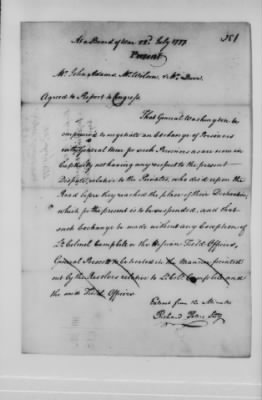 351
At a Board of War 22d July 1777
Present
Mr. John Adams Mr. Wolcott & Mr. Duer
Agreed to Report to Congress
That General Washington be
empowered to negotiate an Exchange of Prisoners
with General Howe for such Prisoners as are now in
Captivity not having any respect to the present
Dispute, relative to the Privates, who died upon the
Road before they reached the place of their Destination,
which for the present is to be suspended, and that
such Exchange be made without any Exception of
Lt Colonel Campbell or the Hessian Field Officers,
General Prescott to be treated in the Manner pointed
out by the Resolves relative to Lt Coll Campbell and
the said Field Officers
Extract from the Minutes
Richard Peters Secy